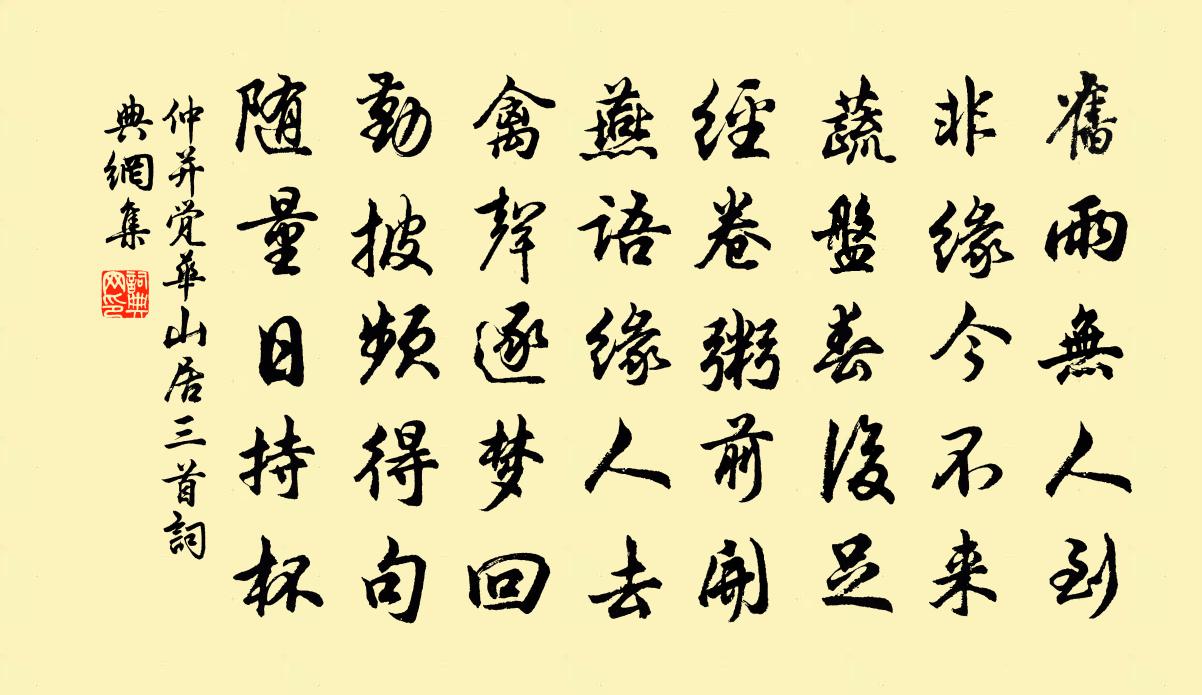 舊雨無人到
非緣今不来
蔬盤春後足
經卷粥前開
燕語緣人去
禽聲逐梦回
勤披頻得句
随量日持杯
仲并觉華山居三首詞
典網集
詞典
网印